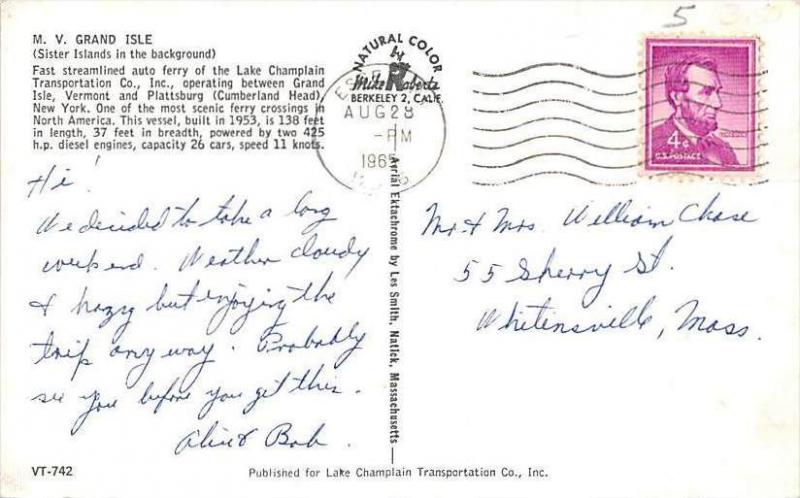 M. V. GRAND ISLE
(Sister Islands in the background)
Fast streamlined auto ferry of the Lake Champlain
Transportation Co., Inc., operating between Grand
Isle, Vermont and Plattsburg (Cumberland Head),
New York. One of the most scenic ferry crossings in
North America. This vessel, built in 1953, is 138 feet
in length, 37 feet in breadth, powered by two 425
h.p. diesel engines, capacity 26 cars, speed 11 knots.
Hi!
We decided to take a long
weekend. Weather cloudy
& hazy but enjoying the
trip anyway. Probably
see you before you get this.
Alice & Bob.
VT-742
NATURAL COLOR
by
Mike Roberts
BERKELEY 2, CALIF.
AUG 28
-PM
1965
Aerial Ektachrome by Les Smith, Natick, Massachusetts
5
4¢
U.S. POSTAGE
Mr. & Mrs. William Chase
55 Sherry St.
Whitensville, Mass.
Published for Lake Champlain Transportation Co., Inc.